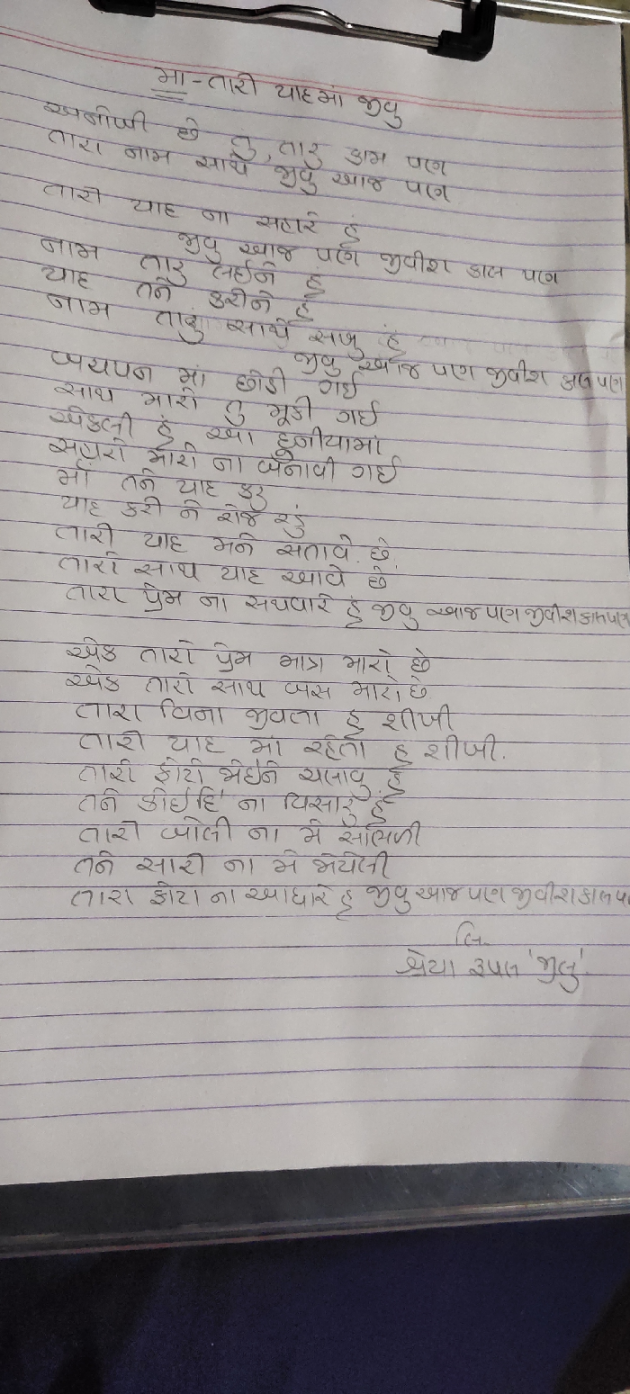 મા - તારી યાદમાં જીવુ
અનોખી છે તુ, તારુ કામ પણ
તારા નામ સાથે જીવુ આજ પણ
તારી યાદ ના સહારે હું
જીવુ આજ પણ જીવીશ કાલ પણ
નામ તારુ લઈને હું
યાદ તને કરીને હું
નામ તારું સાથે સજુ હું
જીવુ આજ પણ જીવીશ કાલ પણ
બચપન માં છોડી ગઈ
સાથ મારો તુ મૂકી ગઈ
એકલી હું આ દુનીયામાં
સહારો મારો ના બનાવી ગઈ
માઁ તને યાદ કરુ
યાદ કરી ને રોજ રડું
તારી યાદ મને સતાવે છે.
તારો સાથ યાદ આવે છે.
તારા પ્રેમ ના સથવારે હું જીવુ આજ પણ જીવીશ કાલ પણ
એક તારો પ્રેમ માત્ર મારો છે
એક તારો સાથ બસ મારો છે.
તારા વિના જીવતા હુ શીખી
તારી યાદ માં રહેતા હુ શીખી.
તારી ફોટો જોઈને ચલાવુ હું
તને કોઈ દિ' ના વિસારું હું
તારી બોલી ના મે સાંભળી
તને સારી ના મે જોયેલી
તારા ફોટા ના આધારે હુ જીવુ આજ પણ જીવીશ કાલ પ
લિ.
શ્રેયા રૂપલ 'જીલુ'